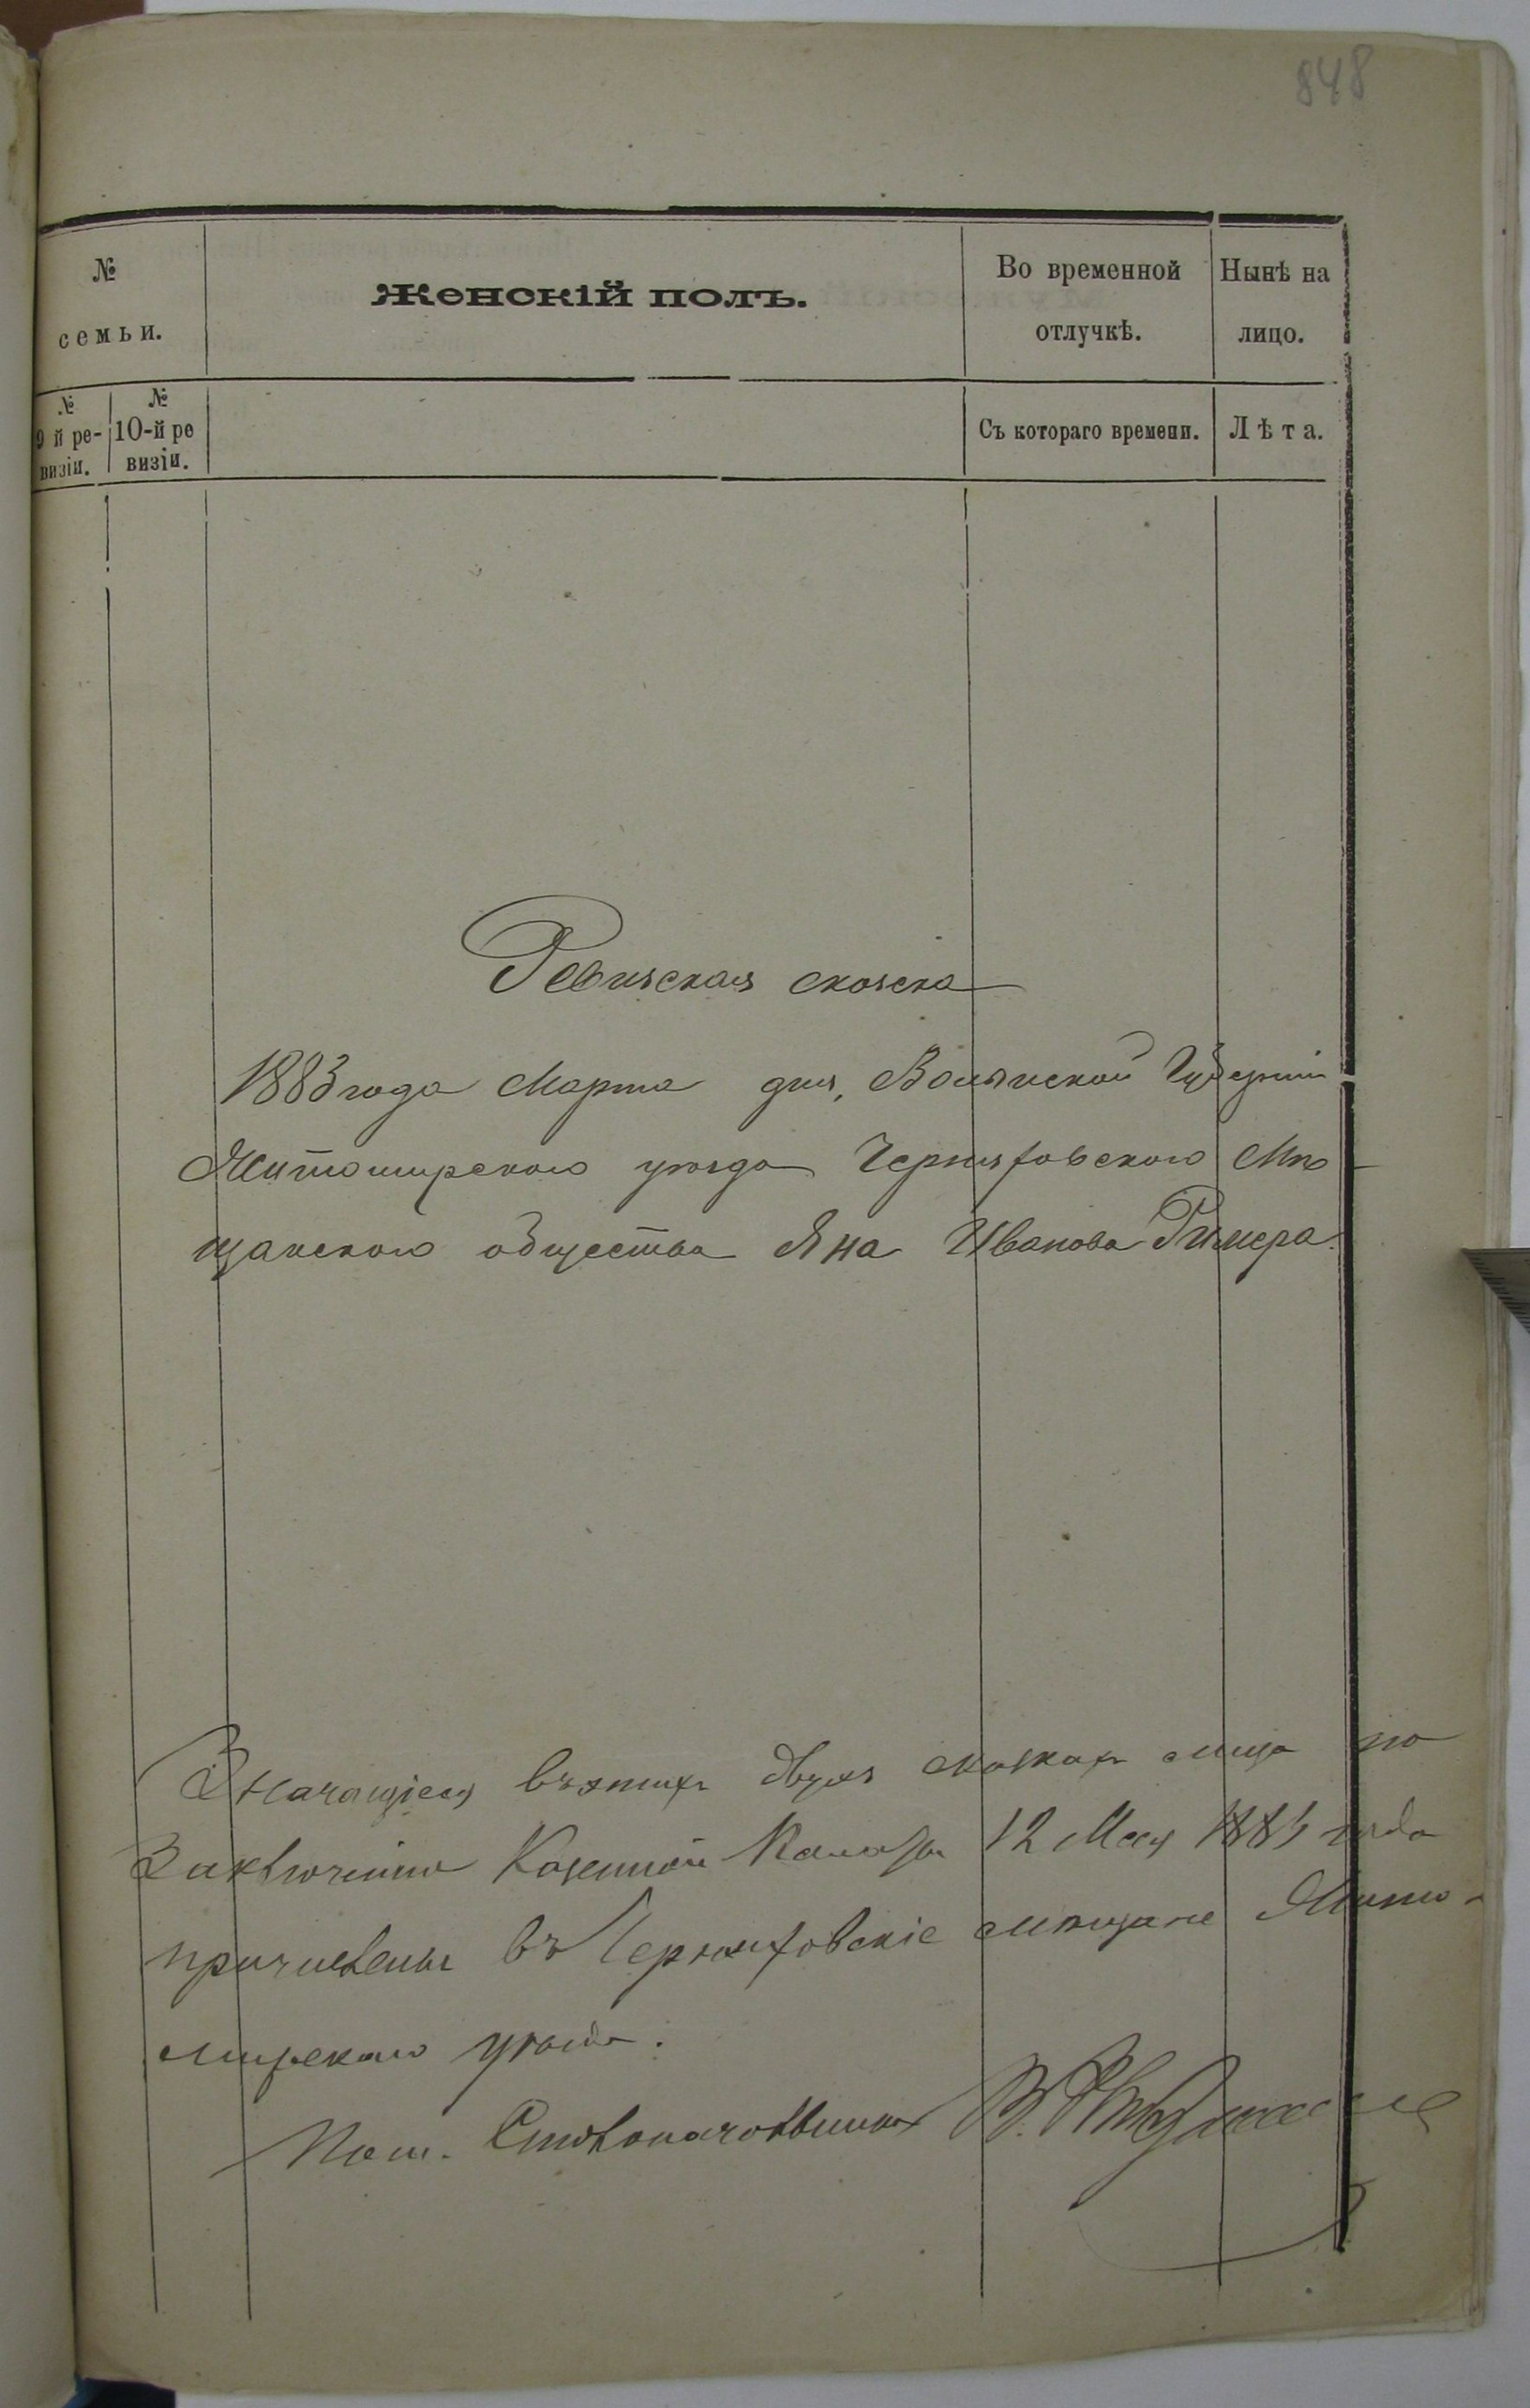 848
№ семьи.
Женскій полъ.
Во временной отлучкѣ.
Нынѣ на лицо.
№ 9 й ре-визіи.
№ 10-й ре визіи.
Съ котораго времени.
Лѣта.
Ревизская сказка
1883 года Марта дня, Волынской Губерніи
Житомирскаго уѣзда Черняховскаго Мѣ-
щанскаго общества Яна Иванова Римера.
Значащіеся въ этихъ двухъ сказкахъ лица по
Заключенію Казенной Палаты 12 Мая 1883 года
причислены въ Черняховскіе мѣщане Жито-
мирскаго уѣзда.
Пом. Столоначальника